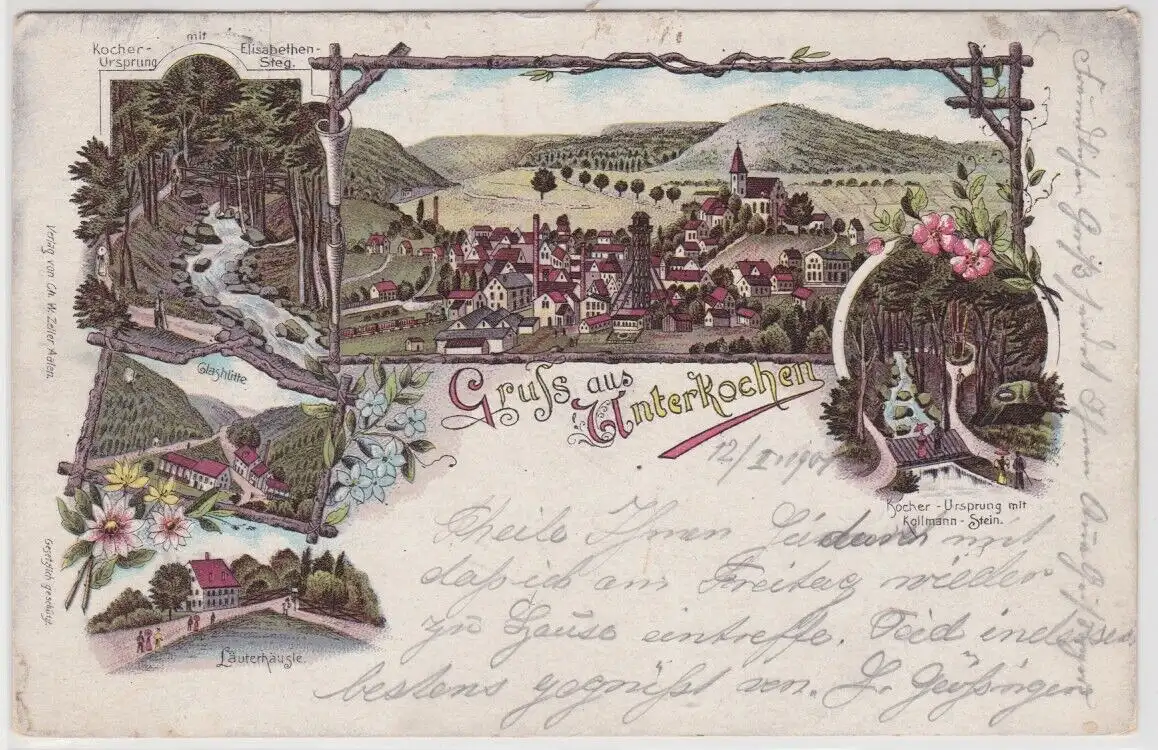 Kocher-
Ursprung
mit
Elisabethen-
Steg.
Verlag von Ch. W. Zeller Aalen.
Glashütte
Gesetzlich geschützt.
Läuterhäusle.
Gruss aus
Unterkochen
Kocher-Ursprung mit
Kollmann-Stein.
Theile Ihnen hiedurch mit
daß ich am Freitag wieder
zu Hause eintreffe. Seid indessen
bestens gegrüßt von.
Freundlichen Gruß sendet Ihnen